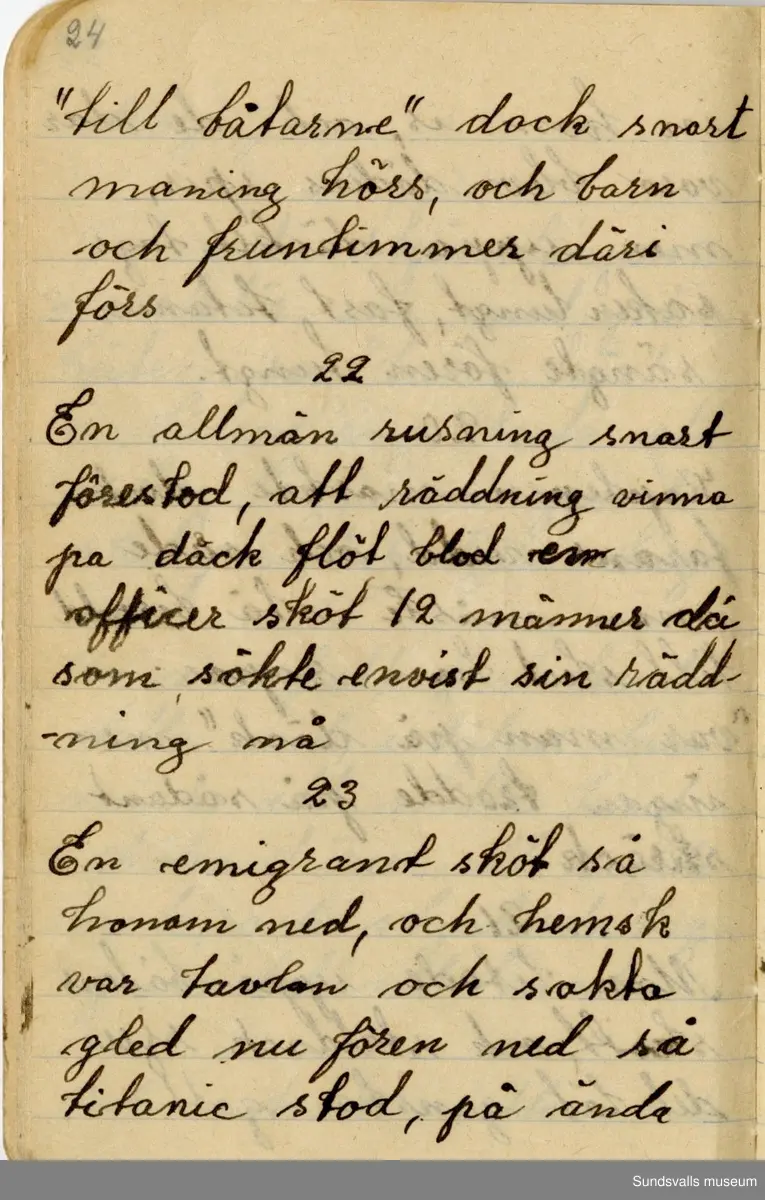 24
"till båtarne" dock snart
maning hörs, och barn
och fruntimmer däri
förs
22
En allmän rusning snart
förestod, att räddning vinna
pa däck flöt blod en
officer sköt 12 männer då
som sökte envist sin rädd-
-ning nå
23
En emigrant sköt så
honom ned, och hemsk
var tavlan och sakta
gled nu fören ned så
titanic stod, på ända
Sundsvalls museum